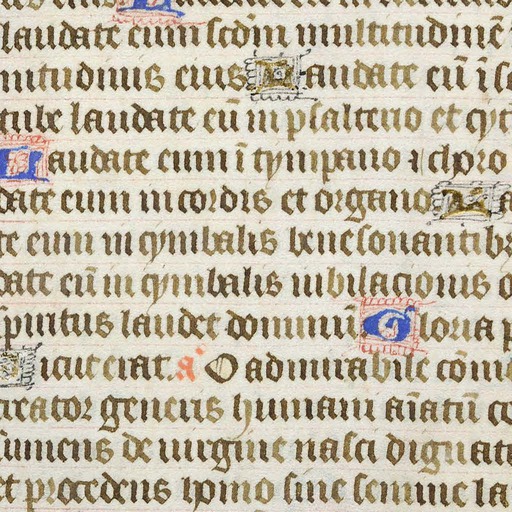 laudate eum scd̄m multitudinē
nitudinis eius Laudate eū ī so
tube laudate eū in psalterio et cyt
Laudate eum ī tympano ⁊ choro
date eum in cordis et organo La
te eum in cymbalis benesonantibs
date eū in cymbalis iubilacionis o
spiritus laudet dominū Gloria p
Sicut erat. a' O admirabile cōm̄e
creator generis humani aīatū co
sumens de uirgine nasci dignat
et procedens homo sine semine la